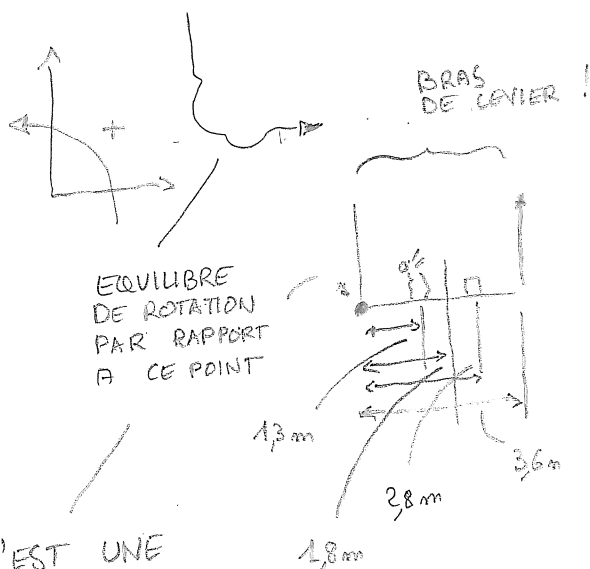 BRAS
DE LEVIER !
+
EQUILIBRE
DE ROTATION
PAR RAPPORT
A CE POINT
1,3 m
2,8 m
3,6 m
1,8 m
'EST UNE